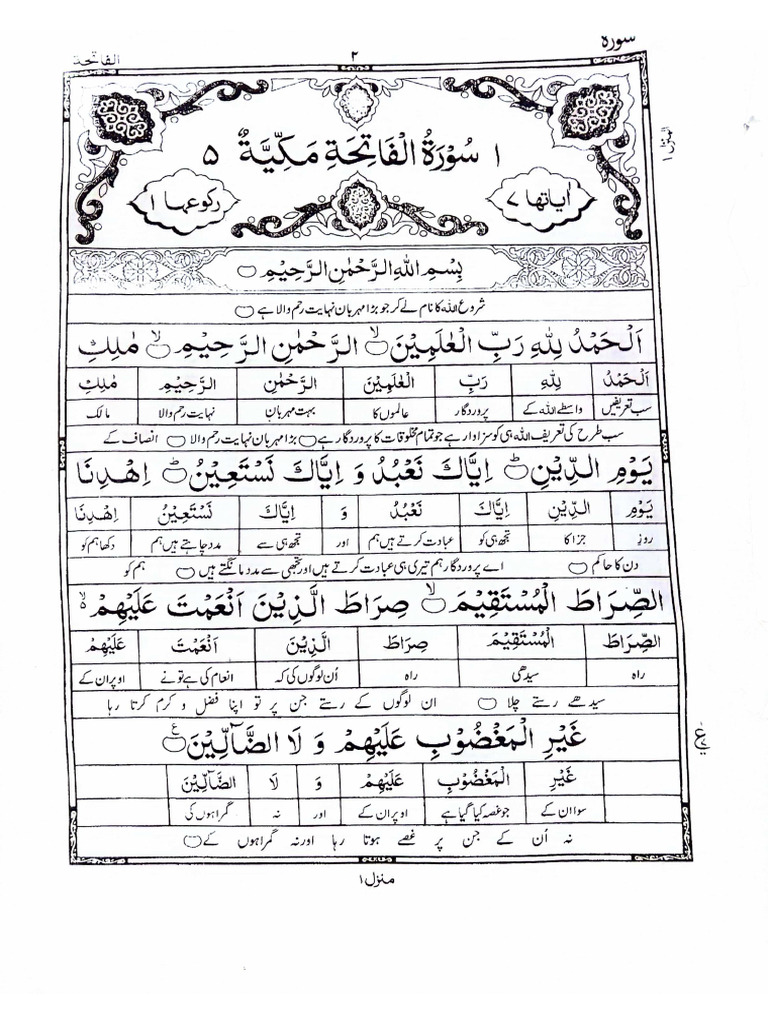 سورۃ
الفاتحۃ ۲
المنزل ۱
۱ سُوْرَةُ الْفَاتِحَةِ مَكِّيَّةٌ ۵
اٰیاتها ۷ رکوعها ۱
بِسْمِ اللهِ الرَّحْمٰنِ الرَّحِيْمِ ۝
شروع الله کا نام لے کر جو بڑا مہربان نہایت رحم والا ہے ۝
اَلْحَمْدُ لِلّٰهِ رَبِّ الْعٰلَمِيْنَ ۝ۙ الرَّحْمٰنِ الرَّحِيْمِ ۝ۙ مٰلِكِ
اَلْحَمْدُ لِلّٰهِ رَبِّ الْعٰلَمِيْنَ الرَّحْمٰنِ الرَّحِيْمِ مٰلِكِ
سب تعریفیں واسطے الله کے پروردگار عالموں کا بہت مہربان نہایت رحم والا مالک
سب طرح کی تعریف الله ہی کو سزاوار ہے جو تمام مخلوقات کا پروردگار ہے ۝ بڑا مہربان نہایت رحم والا ۝ انصاف کے
يَوْمِ الدِّيْنِ ۝ؕ اِيَّاكَ نَعْبُدُ وَ اِيَّاكَ نَسْتَعِيْنُ ۝ؕ اِهْدِنَا
يَوْمِ الدِّيْنِ اِيَّاكَ نَعْبُدُ وَ اِيَّاكَ نَسْتَعِيْنُ اِهْدِنَا
روزِ جزا کا تجھ ہی کو عبادت کرتے ہیں ہم اور تجھ ہی سے مدد چاہتے ہیں ہم دکھا ہم کو
دن کا حاکم ۝ اے پروردگار ہم تیری ہی عبادت کرتے ہیں اور تجھی سے مدد مانگتے ہیں ۝ ہم کو
الصِّرَاطَ الْمُسْتَقِيْمَ ۝ۙ صِرَاطَ الَّذِيْنَ اَنْعَمْتَ عَلَيْهِمْ ۙ
الصِّرَاطَ الْمُسْتَقِيْمَ صِرَاطَ الَّذِيْنَ اَنْعَمْتَ عَلَيْهِمْ
راہ سیدھی راہ اُن لوگوں کی کہ انعام کی ہے تو نے اوپر ان کے
سیدھے رستے چلا ۝ ان لوگوں کے رستے جن پر تو اپنا فضل و کرم کرتا رہا
غَيْرِ الْمَغْضُوْبِ عَلَيْهِمْ وَ لَا الضَّآلِّيْنَ ۝
غَيْرِ الْمَغْضُوْبِ عَلَيْهِمْ وَ لَا الضَّآلِّيْنَ
سوا ان کے جو غصہ کیا گیا ہے اوپر ان کے اور نہ گمراہوں کی
نہ اُن کے جن پر غصے ہوتا رہا اور نہ گمراہوں کے ۝
منزل ۱